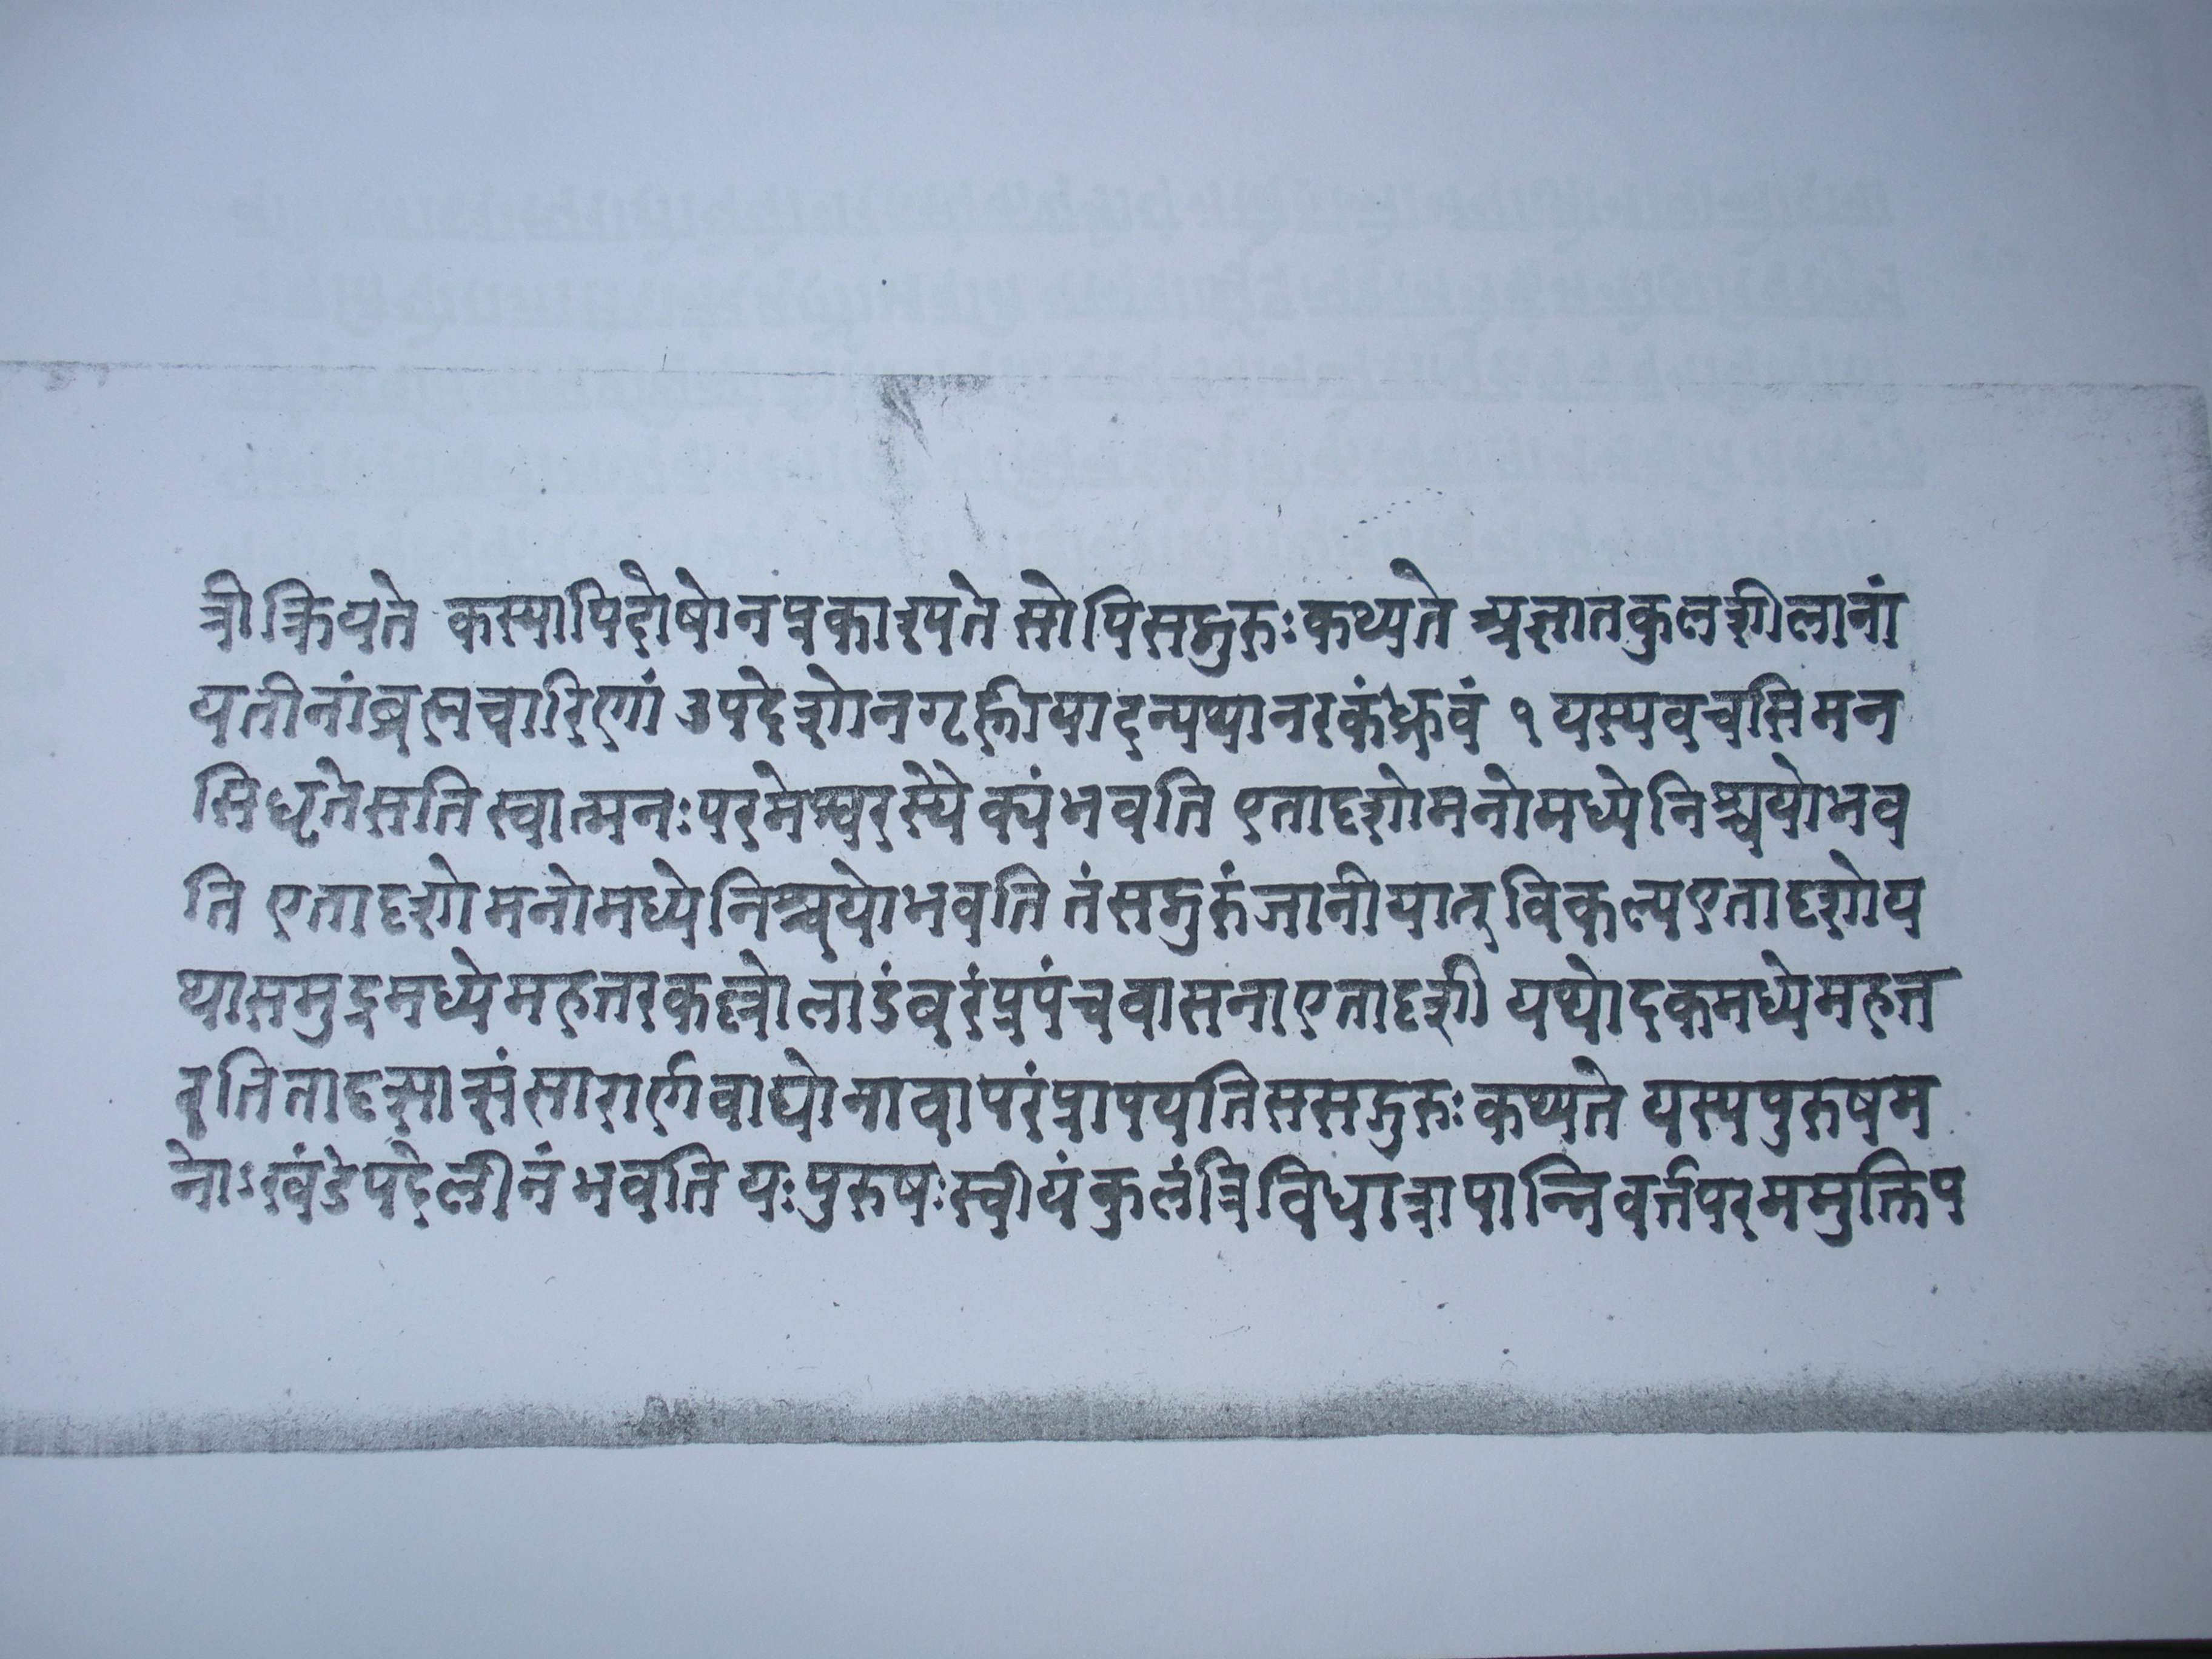 त्री क्रियते कस्यापिदोषोनप्रकाश्यते सोपिसद्गुरुः कथ्यते अज्ञातकुलशीलानां
यतीनांब्रह्मचारिणां उपदेशोनगृह्णीयादन्यथानरकंध्रुवं १ यस्यवचसिमन
सिधृतेसति स्वात्मनःपरमेश्वरस्येक्यंभवति एतादृशोमनोमध्येनिश्चयोभव
ति एतादृशोमनोमध्येनिश्चयोभवति तंसद्गुरुंजानीयात् विकल्पएतादृशोय
थासमुद्रमध्येमहत्तरकल्लोलाडंबरंप्रपंचवासनाएतादृशी यथोदकमध्येमहत्त
वृतितादृसात्संसारार्णवाद्योनावापरंप्रापयतिससद्गुरुःकथ्यते यस्यपुरुषम
नोऽखंडेपदेलीनंभवति यःपुरुषःस्वीयंकुलंत्रिविधात्तापान्निवर्त्तपरममुक्तिप